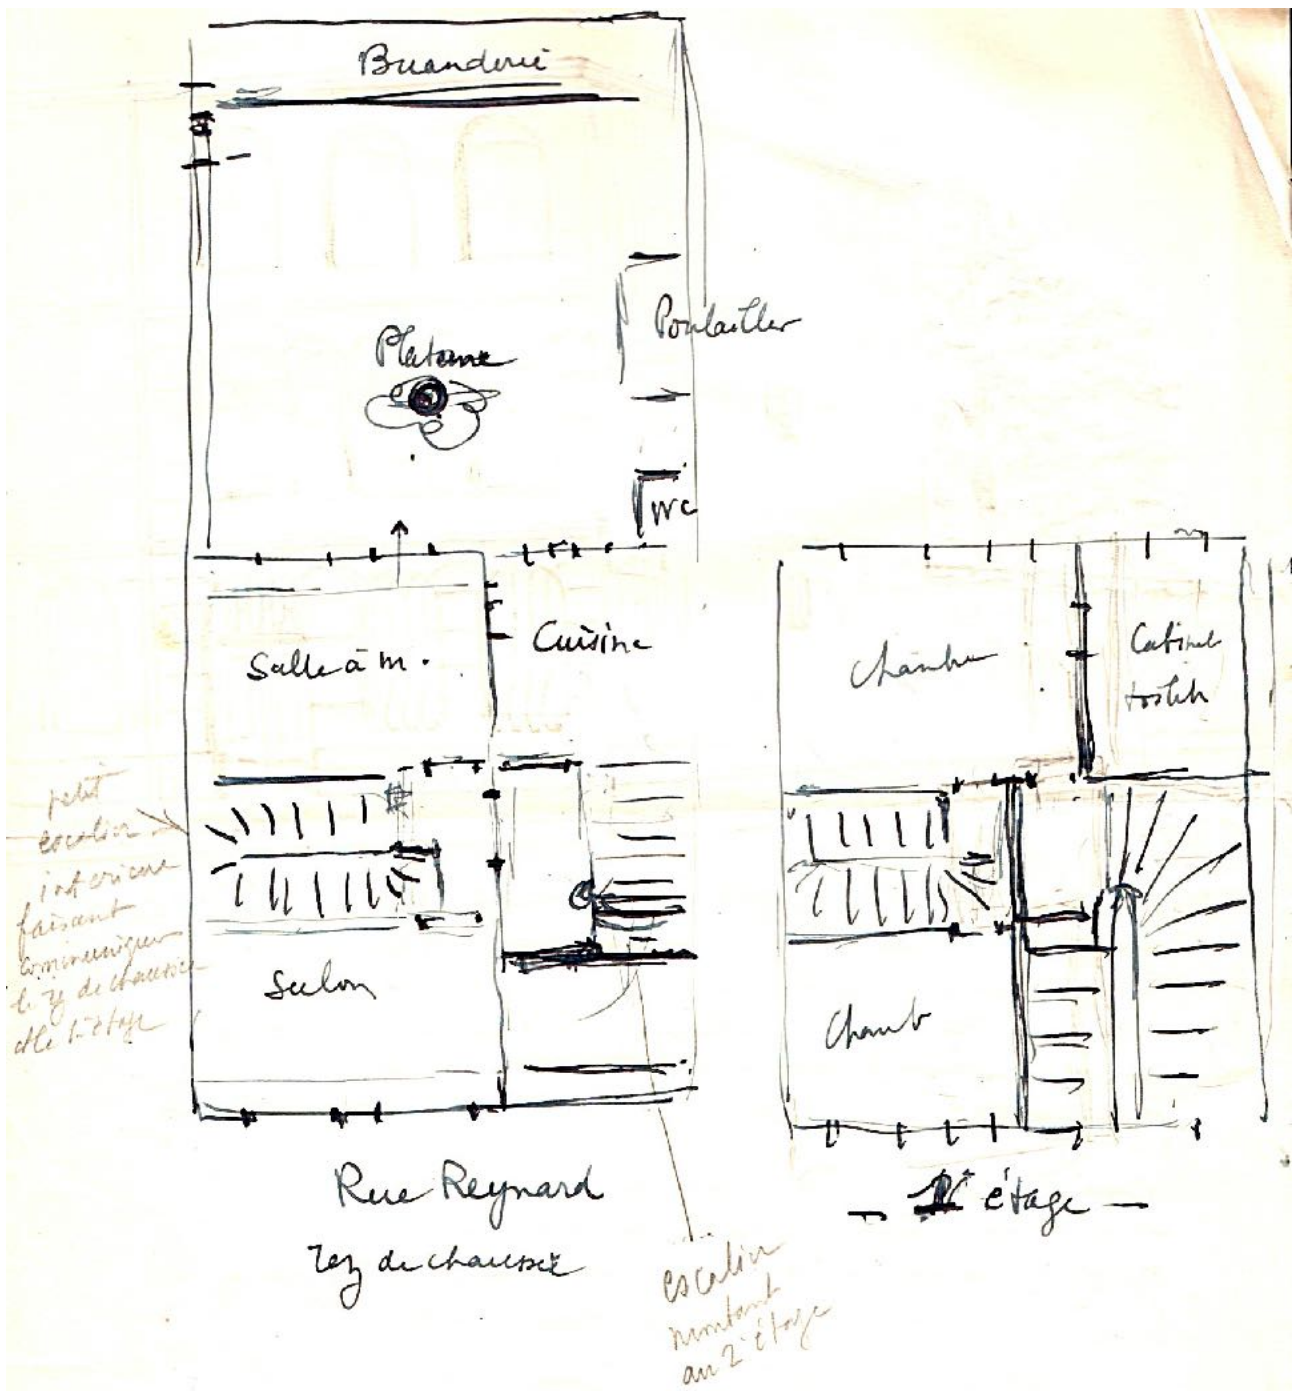 Buanderie
Poulailler
Platane
WC
Cuisine
Salle à m.
Salon
petit
escalier
intérieur
faisant
communiquer
le rez de chaussée
et le 1er étage
Rue Reynard
rez de chaussée
escalier
montant
au 2e étage
Chambre
Cabinet
toilette
Chamb
1er étage